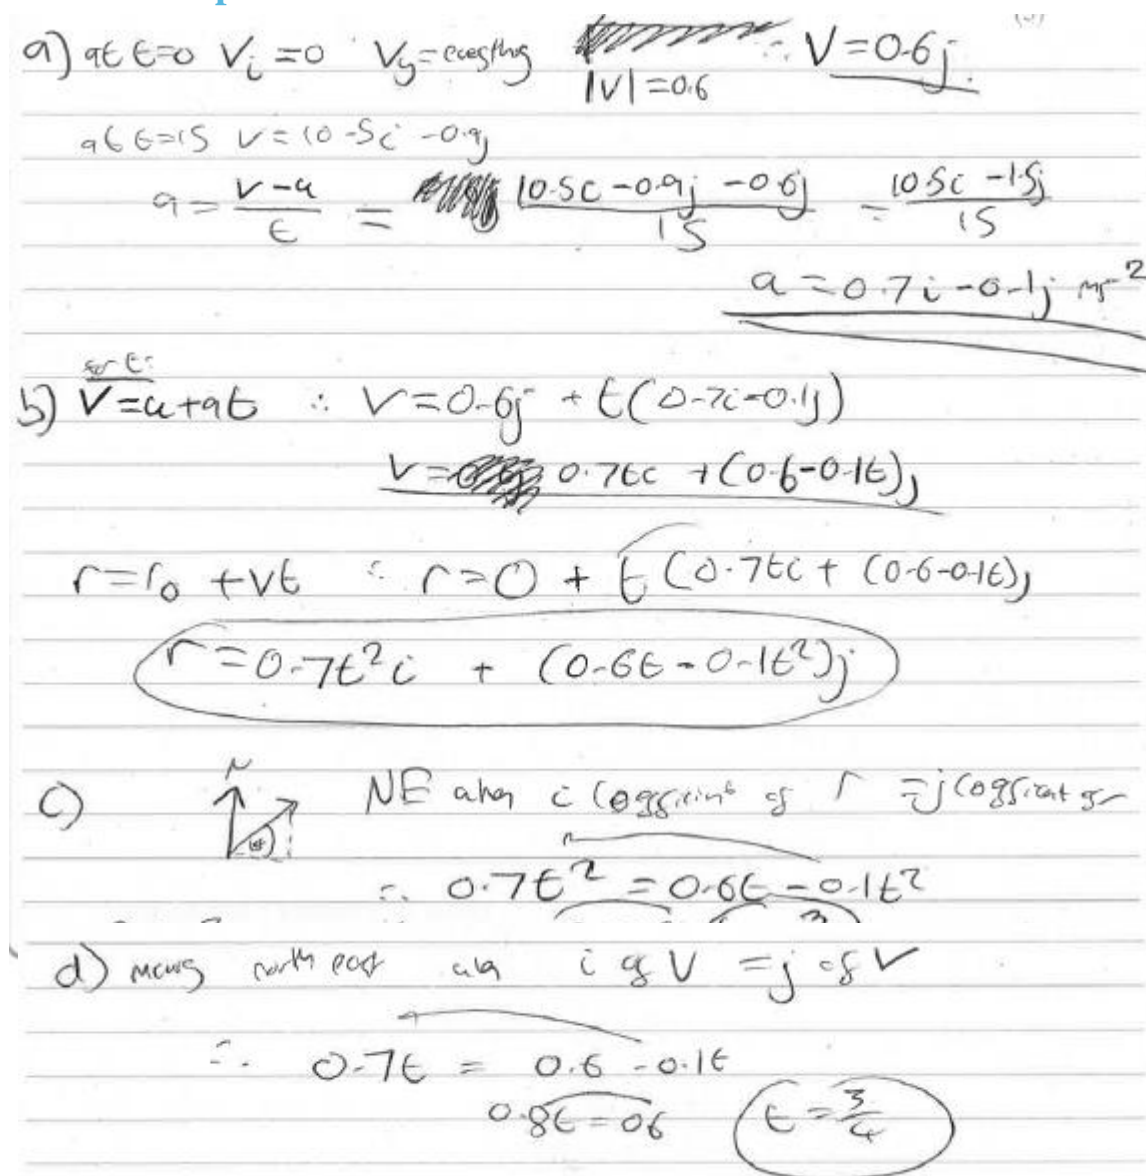 a) at t=0 V_i =0 V_y = everything ∴ V=0.6j
|V|=0.6
at t=15 v=10.5i -0.9j
a = \frac{v-u}{t} = \frac{10.5i -0.9j -0.6j}{15} = \frac{10.5i -1.5j}{15}
a = 0.7i -0.1j ms^{-2}
for t:
b) V=u+at ∴ V=0.6j + t(0.7i-0.1j)
V= 0.7ti +(0.6-0.1t)j
r=r_0 +vt ∴ r=0 + t(0.7ti + (0.6-0.1t)j
r=0.7t²i + (0.6t -0.1t²)j
N
c) NE when i coefficient of r = j coefficient of r
∴ 0.7t² = 0.6t -0.1t²
d) moving north east when i of V = j of V
∴ 0.7t = 0.6 -0.1t
0.8t = 06 t = \frac{3}{4}